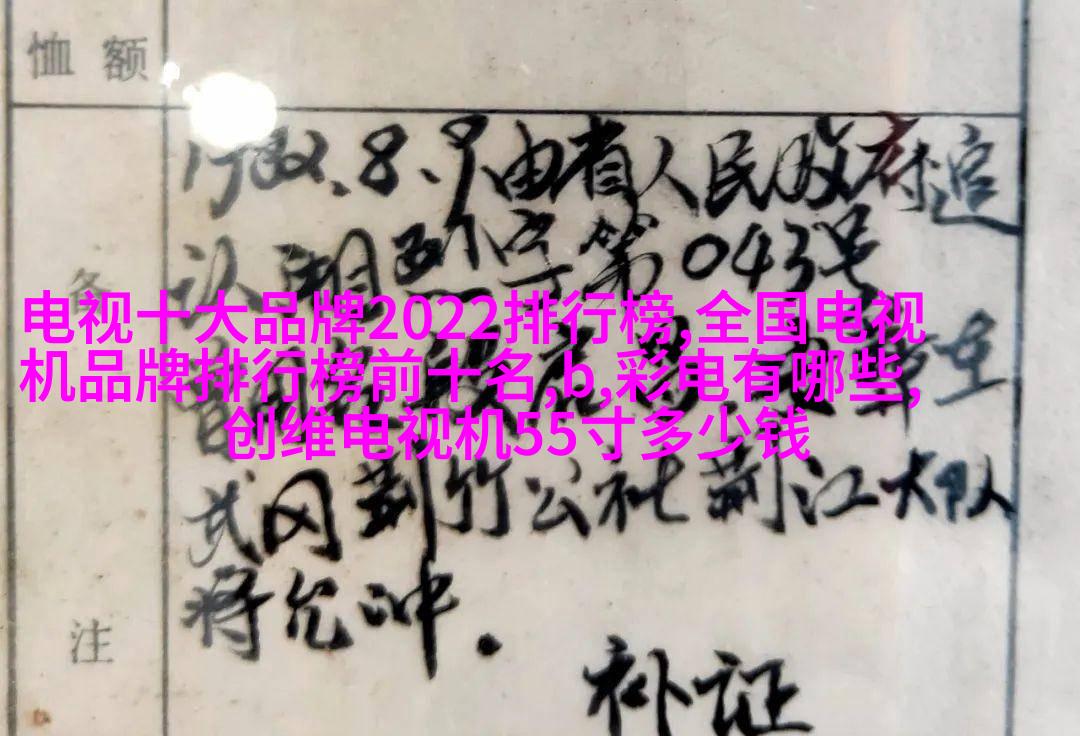 恤额
1982.8.9由省人民政府追
认湘烈字第043号
电视十大品牌2022排行榜,全国电视
机品牌排行榜前十名,b,彩电有哪些,
创维电视机55寸多少钱
武冈荆竹公社荆江大队
蒋允冲.
注
补证